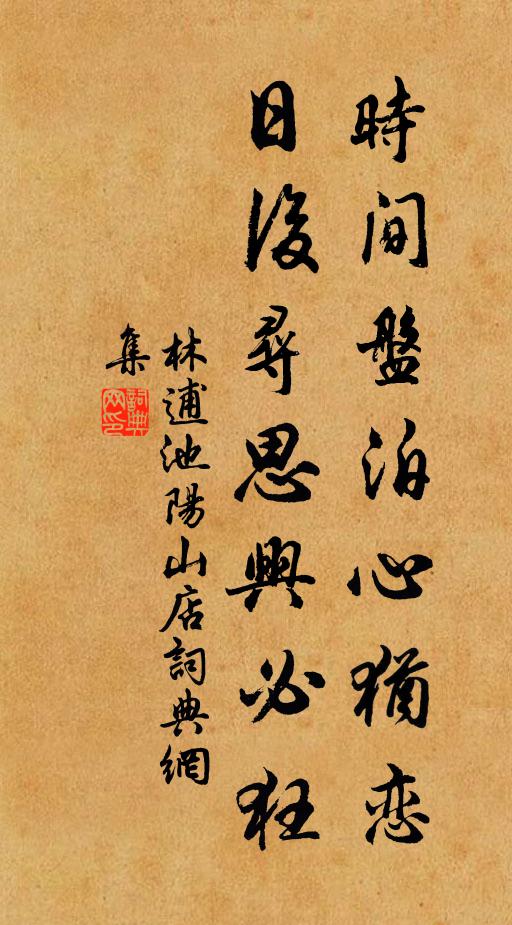 時间盤泊心猶恋
日後尋思興必狂
林逋池陽山店詞典網
集
詞典
网印